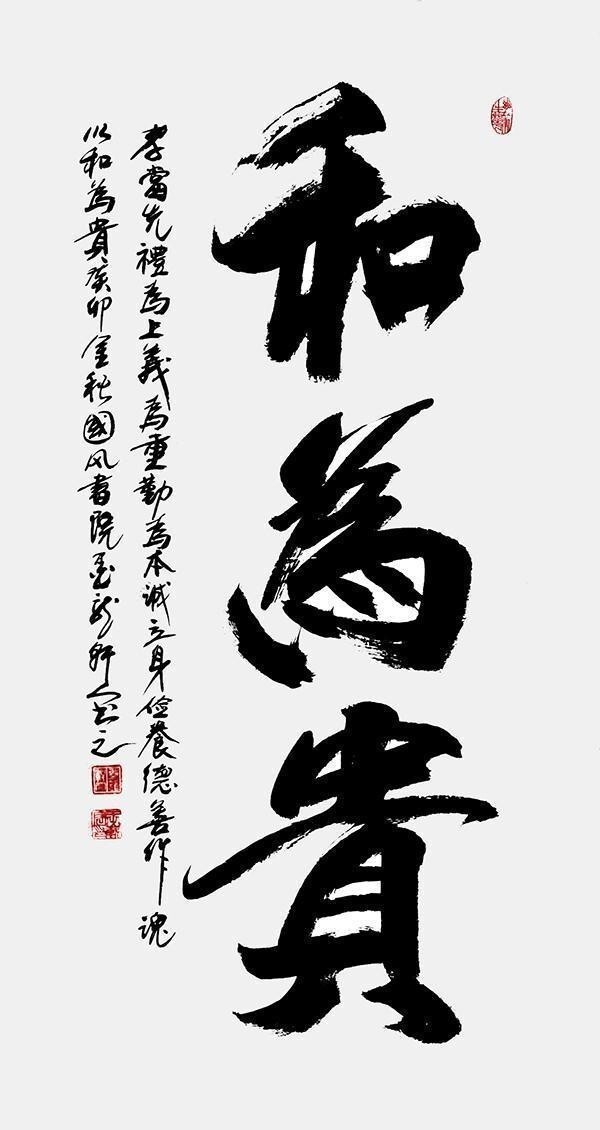 和為貴
孝當先禮為上義為重勤為本誠立身儉養德善作魂
以和為貴癸卯金秋國风書院墨龍軒人書之